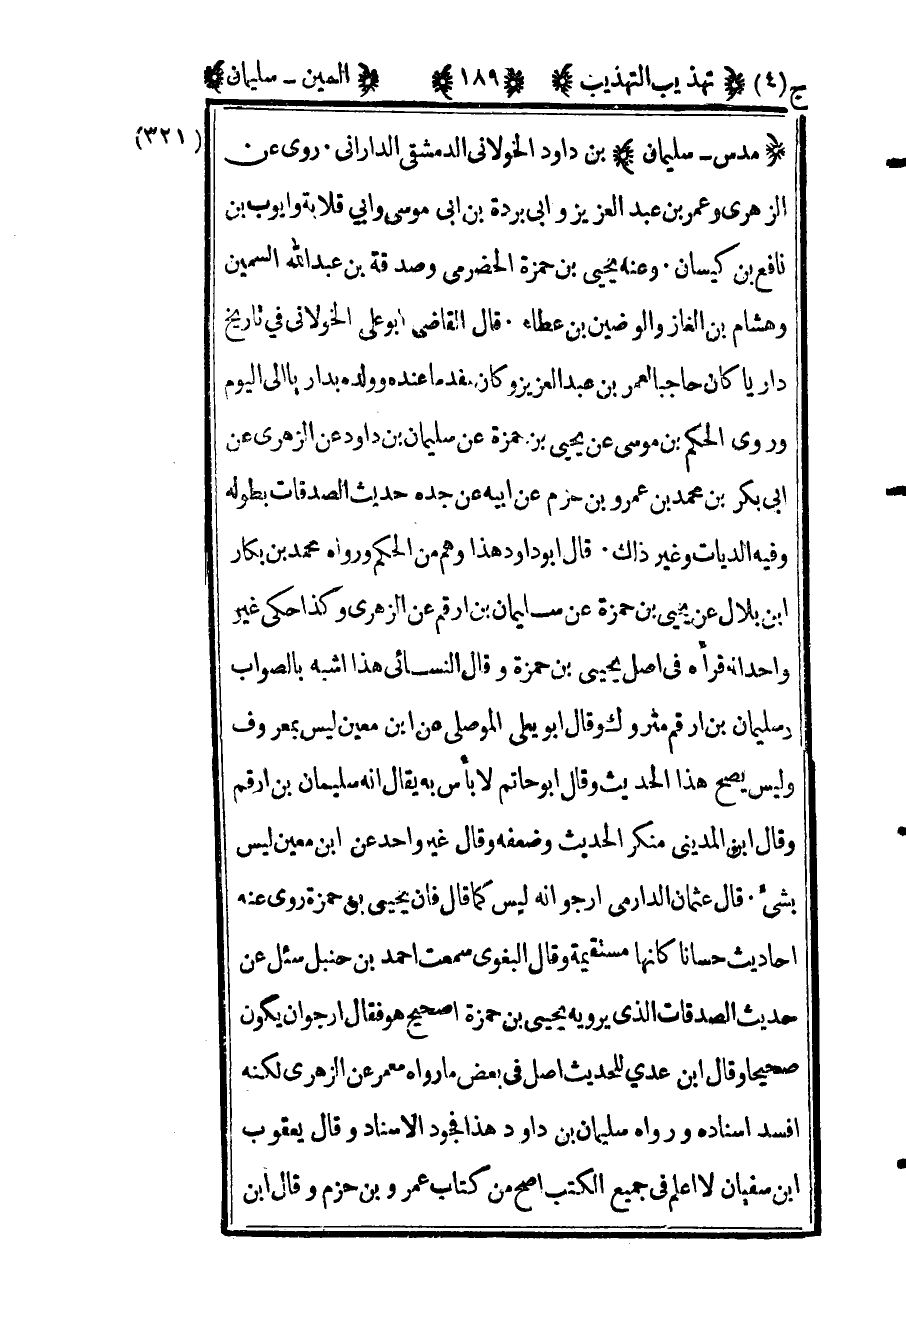 ج (٤) ﴿ تهذيب التهذيب ﴾ ﴿ ١٨٩ ﴾ ﴿ السين ـ سليمان ﴾
(٣٢١)
﴿ مدس ـ سليمان ﴾ بن داود الخولاني الدمشقي الداراني ٠ روى عن
الزهرى وعمر بن عبد العزيز و ابى بردة بن ابى موسى وابي قلابة وايوب بن
نافع بن كيسان ٠ وعنه يحيى بن حمزة الحضرمي وصدقة بن عبدالله السمين
وهشام بن الغاز والوضين بن عطاء ٠ قال القاضي ابو على الخولاني في تاريخ
داريا كان حاجبا لعمر بن عبد العزيز وكان مقدما عنده وولده بداريا الى اليوم
وروى الحكم بن موسى عن يحيى بن حمزة عن سليمان بن داود عن الزهرى عن
ابى بكر بن محمد بن عمرو بن حزم عن ابيه عن جده حديث الصدقات بطوله
وفيه الديات وغير ذلك ٠ قال ابو داود هذا وهم من الحكم ورواه محمد بن بكار
ابن بلال عن يحيى بن حمزة عن سليمان بن ارقم عن الزهرى وكذا حكى غير
واحد انه قرأه فى اصل يحيى بن حمزة و قال النسائى هذا اشبه بالصواب
وسليمان بن ارقم متروك وقال ابو يعلى الموصلى عن ابن معين ليس بمعروف
وليس يصح هذا الحديث وقال ابو حاتم لا بأس به يقال انه سليمان بن ارقم
وقال ابن المدينى منكر الحديث وضعفه وقال غير واحد عن ابن معين ليس
بشئ ٠ قال عثمان الدارمى ارجو انه ليس كما قال فان يحيى بن حمزة روى عنه
احاديث حسانا كانها مستقيمة وقال البغوى سمعت احمد بن حنبل سئل عن
حديث الصدقات الذى يرويه يحيى بن حمزة اصحيح هو فقال ارجو ان يكون
صحيحا وقال ابن عدي للحديث اصل فى بعض ما رواه معمر عن الزهرى لكنه
افسد اسناده و رواه سليمان بن داود هذا فجود الاسناد و قال يعقوب
ابن سفيان لا اعلم فى جميع الكتب اصح من كتاب عمرو بن حزم و قال ابن